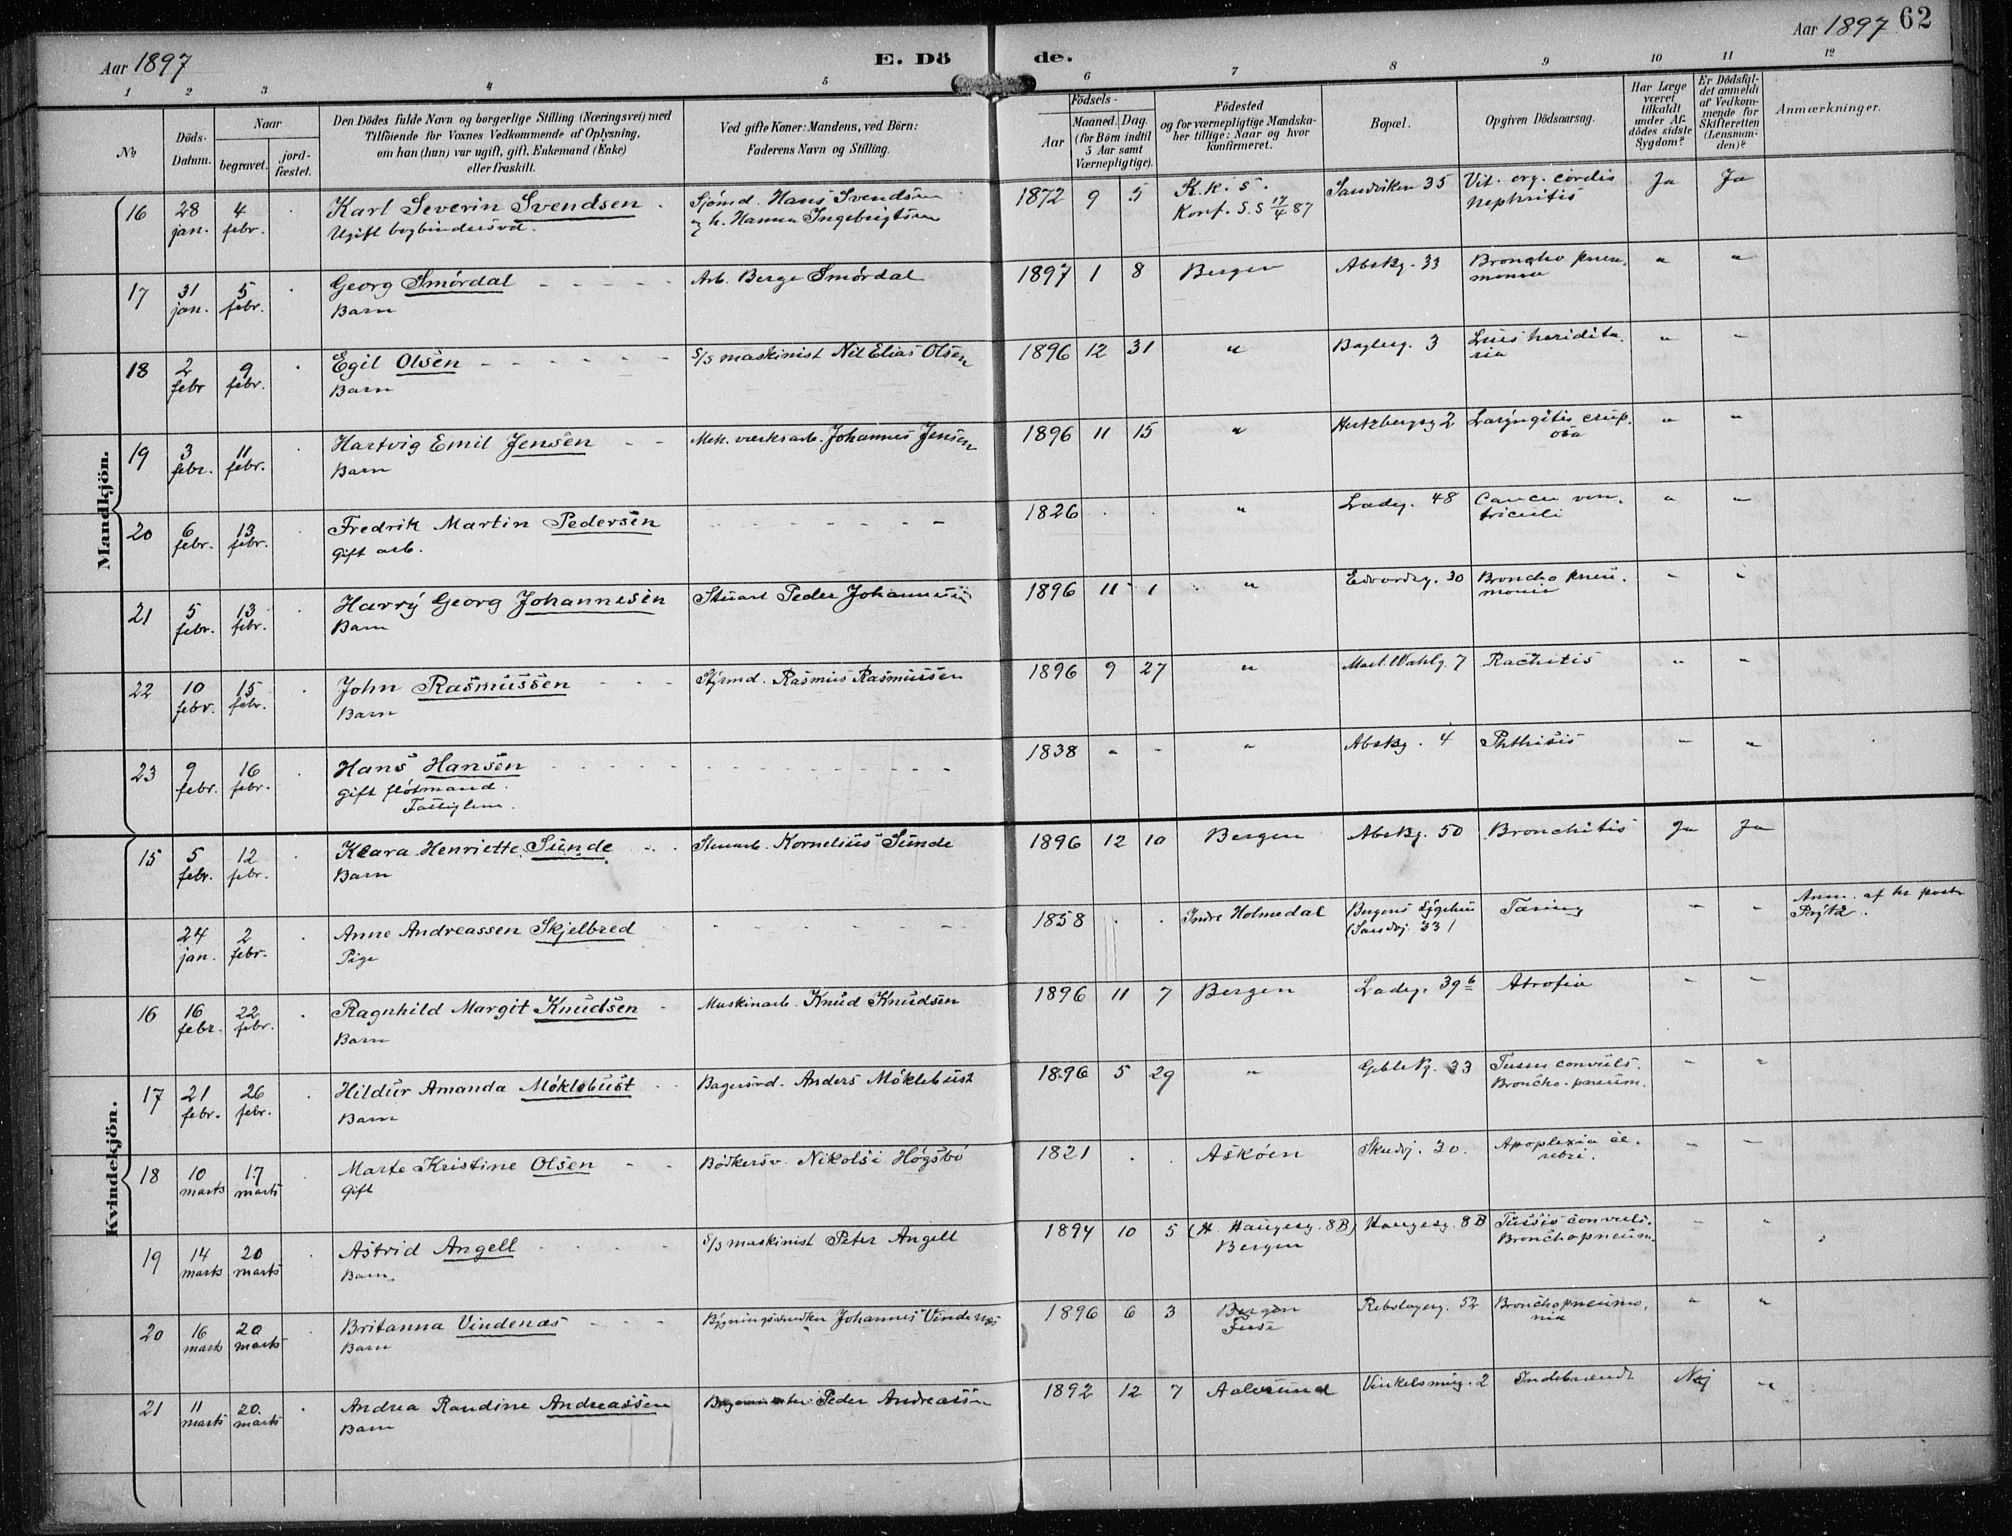 Aar 1897
E. Dö
de.
Aar 1897
62
1 2 3 4 5 6 7 8 9 10 11 12
№
Döds-Datum.
Naar
begravet.
jord-fæstet.
Den Dödes fulde Navn og borgerlige Stilling (Næringsvei) med
Tilföiende for Voxnes Vedkommende af Oplysning,
om han (hun) var ugift, gift, Enkemand (Enke)
eller fraskilt.
Ved gifte Koner: Mandens, ved Börn:
Faderens Navn og Stilling.
Födsels-
Aar
Maaned. Dag.
(for Börn indtil
5 Aar samt
Værnepligtige).
Födested
og for værnepligtige Mandska-
ber tillige: Naar og hvor
konfirmeret.
Bopæl.
Opgiven Dödsaarsag.
Har Læge
været
tilkaldt
under Af-
dödes sidste
Sygdom?
Er Dödsfal-
det anmeldt
af Vedkom-
mende for
Skifteretten
(Lensman-
den)?
Anmærkninger.
Mandkjön.
16 28 jan. 4 febr. Karl Severin Svendsen Sjömd. Hans Svendsen 1872 9 5 K.k. S. Sandviken 35 Vit. org. cordis Ja Ja
Ugift bogbindersvd. og h. Hanna Ingebrigtsen Konf. S.S 17/4 87 Nephritis
17 31 jan. 5 febr. Georg Smørdal Arb. Berge Smørdal 1897 1 8 Bergen Abskg. 33 Broncho pneu- " "
Barn monia
18 2 febr 9 febr. Egil Olsen S/S maskinist Nil Elias Olsen 1896 12 31 " 3 Lues heridita- " "
Barn ria
19 3 febr. 11 febr. Hartvig Emil Jensen Mek. værksarb. Johannes Jensen 1896 11 15 " Hertzbergsg 2 Laryngitis crup- " "
Barn osa
20 6 febr. 13 febr. Fredrik Martin Pedersen 1826 " Ladeg. 48 Cancer ven- " "
Gift arb. triculi
21 5 febr. 13 febr. Harry Georg Johannesen Stuart Peder Johannesen 1896 11 1 " Edvardsg. 30 Broncho pneu- " "
Barn monia
22 10 febr. 15 febr. John Rasmussen Styrmd. Rasmus Rasmussen 1896 9 27 " 7 Rachitis " "
Barn
23 9 febr. 16 febr. Hans Hansen 1838 " " " Abskg. 4 Phthisis " "
Gift fløtmand.
Fattiglem.
Kvindekjön.
15 5 febr. 12 febr. Klara Henriette Sunde Stenarb. Kornelius Sunde 1896 12 10 Bergen Abskg. 50 Bronchitis Ja Ja
Barn
24 jan. 2 febr. Anne Andreassen Skjelbred 1858 Indre Holmedal Bergens Sygehus Tæring " " Anm. af hr past
Pige 33)
16 16 febr. 22 febr. Ragnhild Margit Knudsen Maskinarb. Knud Knudsen 1896 11 7 Bergen Ladeg. 39 b Atrofia " "
Barn
17 21 febr. 26 febr. Hildur Amanda Møklebust Bagersvd. Anders Møklebust 1896 5 29 " 33 Tussis convuls. " "
Barn Broncho-pneum.
18 10 marts 17 marts Marte Kristine Olsen Bødkersv. Nikolai Høgsbø 1821 Askøen Skudg. 30. Apoplexia ce- " "
Gift rebri.
19 14 marts 20 marts Astrid Angell S/S maskinist Peter Angell 1894 10 5 (H. Haugesg. 8B) Haugesg. 8B Tussis convuls. " "
Barn. Bergen Bronchopneum.
20 16 marts 20 marts Britanna Vindenæs Bygningssnedker Johannes Vindenæs 1896 6 3 Bergen Rebslagerg. 52 Bronchopneumo- " "
Barn Fuse nia
21 11 marts 20. marts Andrea Randine Andreassen Peder Andreassen 1892 12 7 Aalesund Vinkelsmug. 2 Indebrændt Nej "
Barn